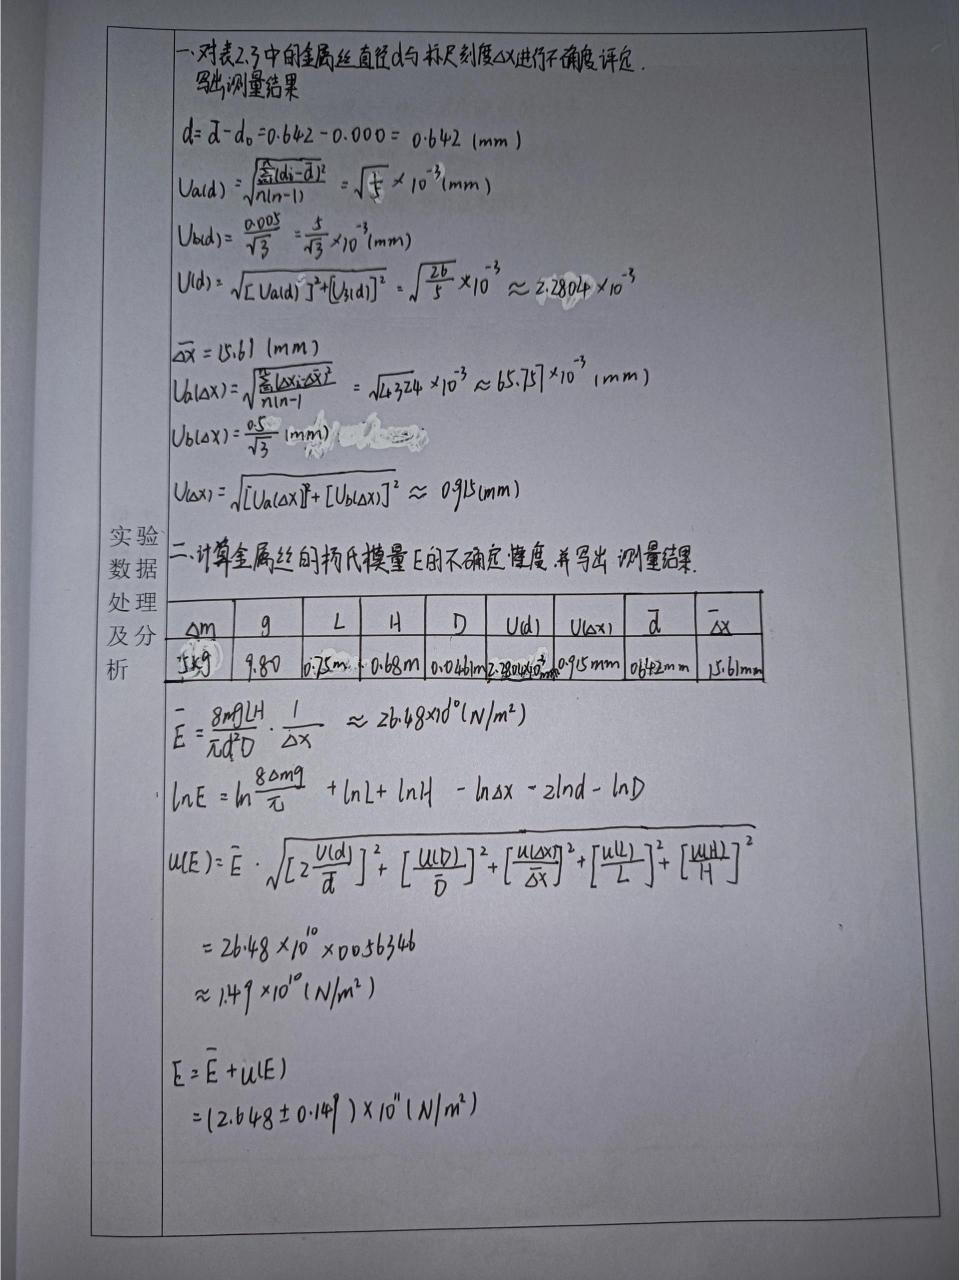 一、对表2.3中的金属丝直径d与标尺刻度Δx进行不确度评定.
写出测量结果
d = d̄ - d₀ = 0.642 - 0.000 = 0.642 (mm)
Ua(d) = √(Σ(di-d̄)²/n(n-1)) = √(1/5) × 10⁻³ (mm)
Ub(d) = 0.005/√3 = 5/√3 × 10⁻³ (mm)
U(d) = √([Ua(d)]²+[U3(d)]²) = √(26/5) × 10⁻³ ≈ 2.2804 × 10⁻³
Δx̄ = 15.61 (mm)
Ua(Δx) = √(Σ(Δxi-Δx̄)²/n(n-1) = √4324 × 10⁻³ ≈ 65.757 × 10⁻³ (mm)
Ub(Δx) = 0.5/√3 (mm)
U(Δx) = √([Ua(Δx)]²+[Ub(Δx)]²) ≈ 0.915 (mm)
实验
数据
处理
及分
析
二、计算金属丝的杨氏模量E的不确定度.并写出测量结果.
Δm g L H D U(d) U(Δx) d̄ Δx̄
5kg 9.80 0.75m 0.68m 0.0461m 0.915mm 0.642mm 15.61mm
Ē = 8mgLH/πd²D · 1/Δx ≈ 26.48×10¹⁰ (N/m²)
lnE = ln 8Δmg/π + lnL + lnH - lnΔx - 2lnd - lnD
u(E) = Ē · √([2 U(d)/d̄]² + [U(D)/D̄]² + [u(Δx)/Δx̄]² + [u(L)/L]² + [u(H)/H]²)
= 26.48 × 10¹⁰ × 0.056346
≈ 1.49 × 10¹⁰ (N/m²)
E = Ē + u(E)
= (2.648 ± 0.149) × 10¹¹ (N/m²)